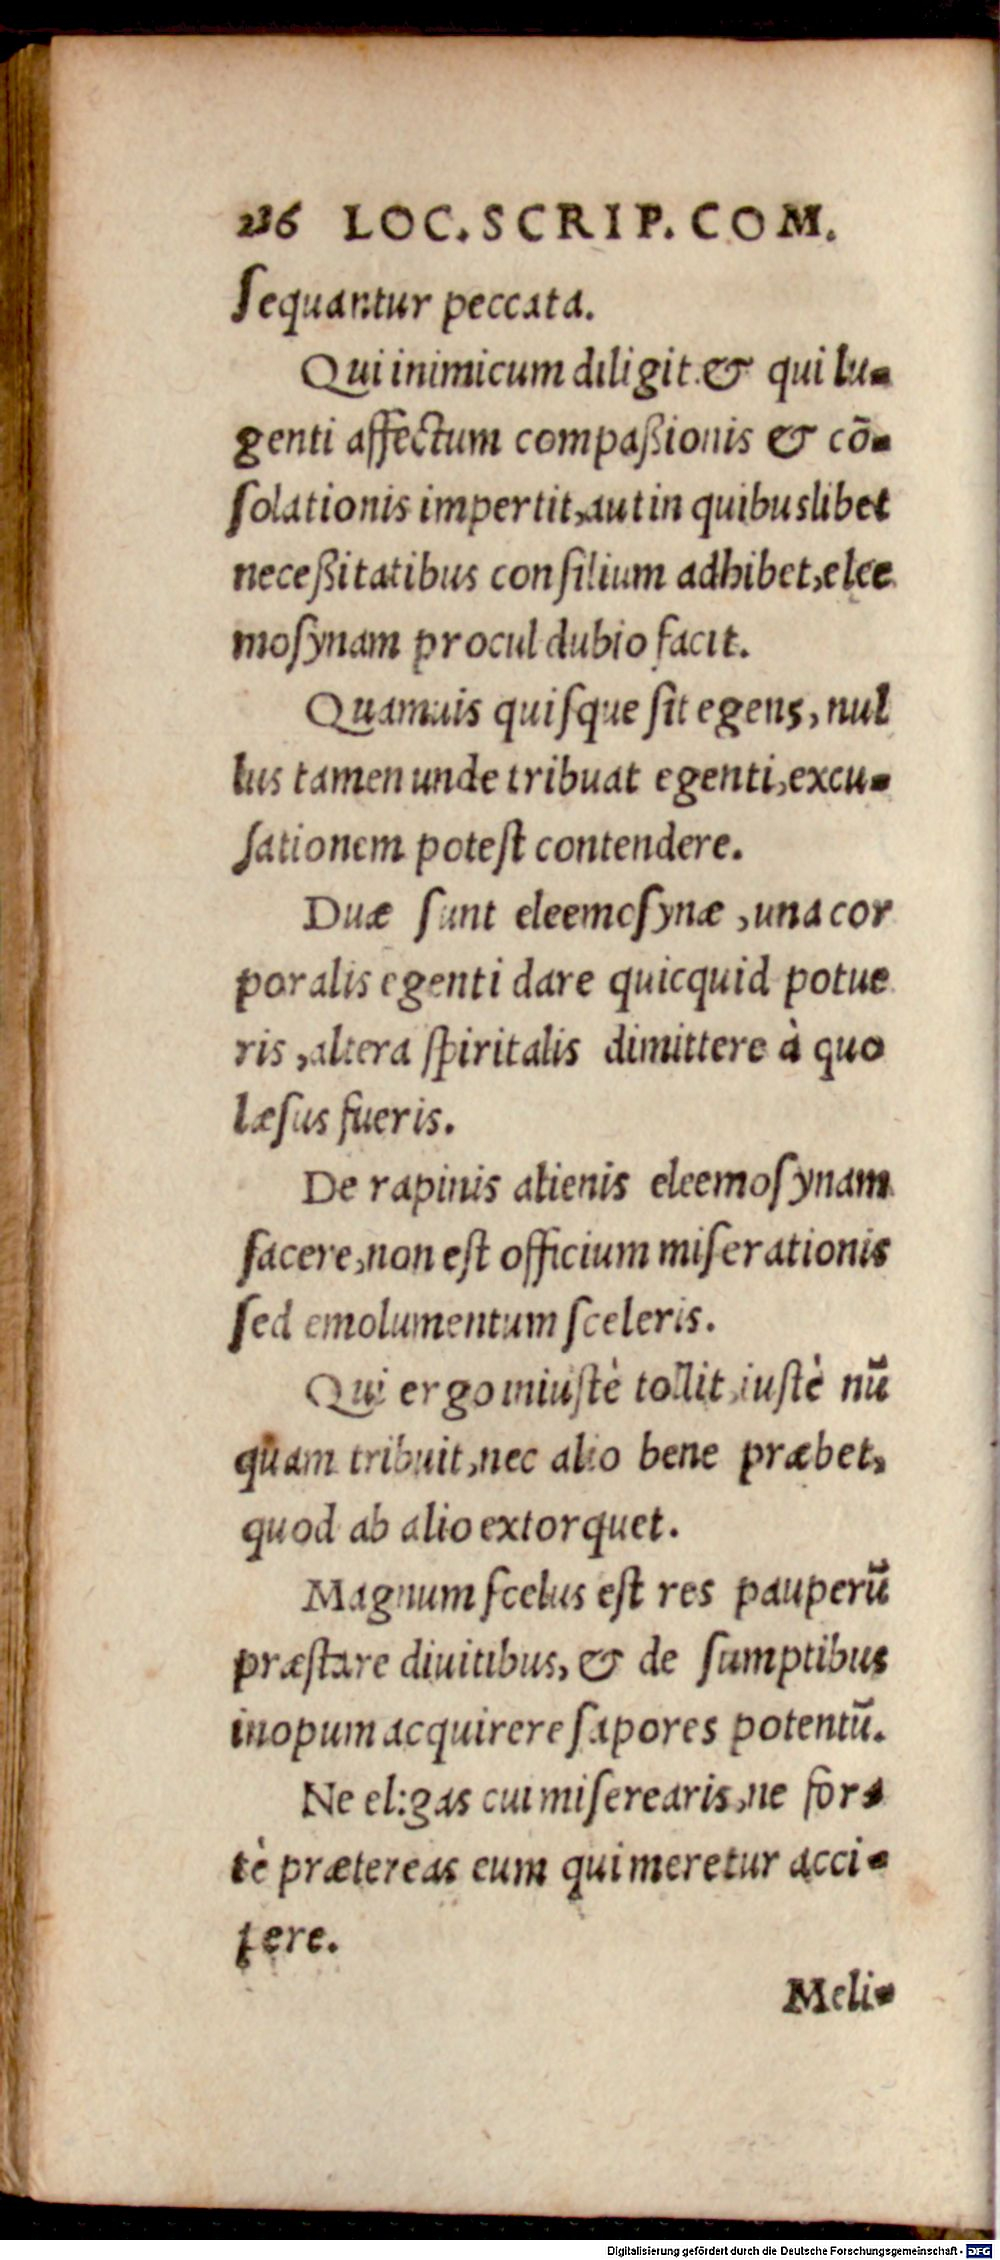 236 LOC. SCRIP. COM.
ſequantur peccata.
Qui inimicum diligit & qui lu-
genti affectum compaßionis & cō-
ſolationis impertit, aut in quibuslibet
neceßitatibus conſilium adhibet, elee
moſynam procul dubio facit.
Quamuis quiſque ſit egens, nul
lus tamen unde tribuat egenti, excu-
ſationem poteſt contendere.
Duæ ſunt eleemoſynæ, una cor
poralis egenti dare quicquid potue
ris, altera ſpiritalis dimittere à quo
læſus fueris.
De rapinis alienis eleemoſynam
facere, non eſt officium miſerationis
ſed emolumentum ſceleris.
Qui ergo iniuſtè tollit, iuſtè nū
quam tribuit, nec alio bene præbet,
quod ab alio extorquet.
Magnum ſcelus eſt res pauperū
præſtare diuitibus, & de ſumptibus
inopum acquirere ſapores potentū.
Ne eligas cui miſerearis, ne for-
tè prætereas eum qui meretur acci-
pere.
Meli-
Digitalisierung gefördert durch die Deutsche Forschungsgemeinschaft - DFG